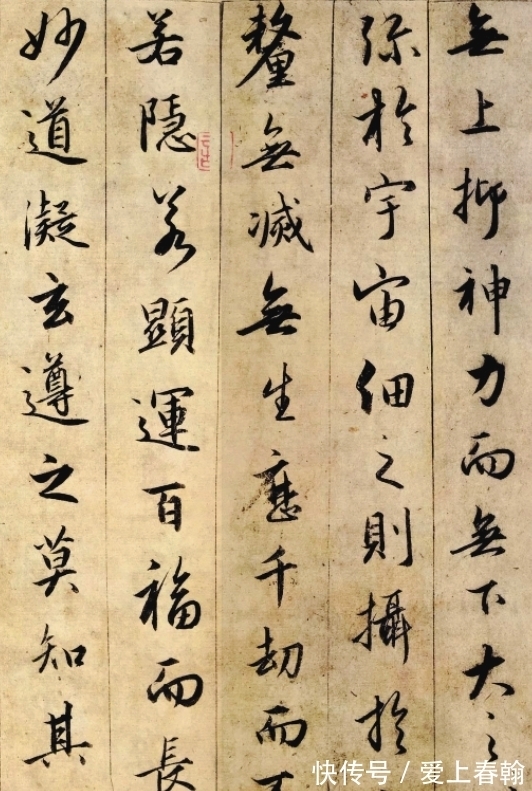 無上抑神力而無下大之
弥於宇宙細之則攝於
釐無滅無生歷千劫而不
若隱若顯運百福而長
妙道凝玄遵之莫知其
快传号 / 爱上春翰